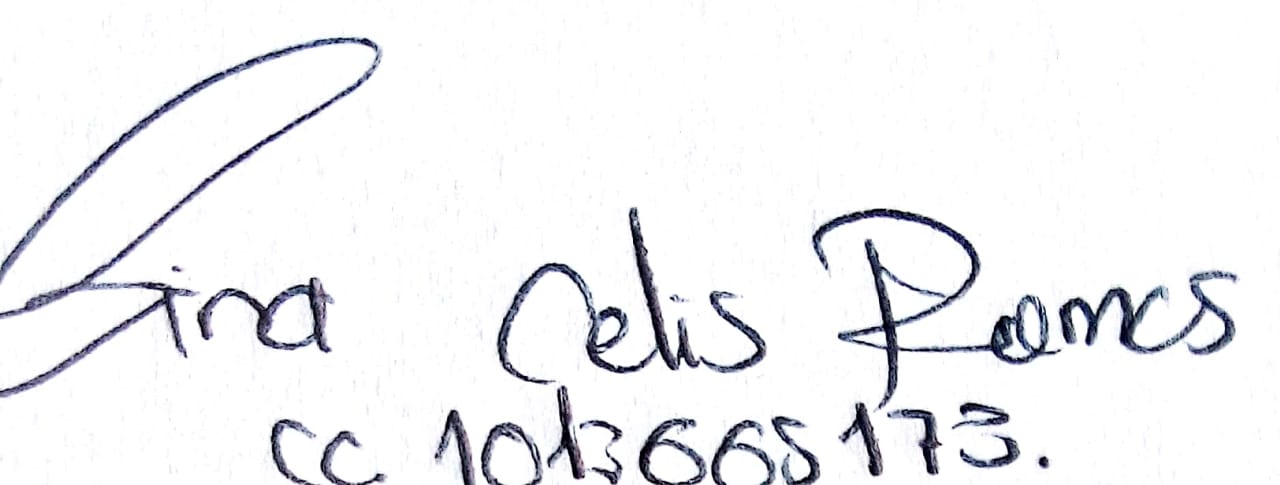 Gina Celis Ramos
CC 1013665173.